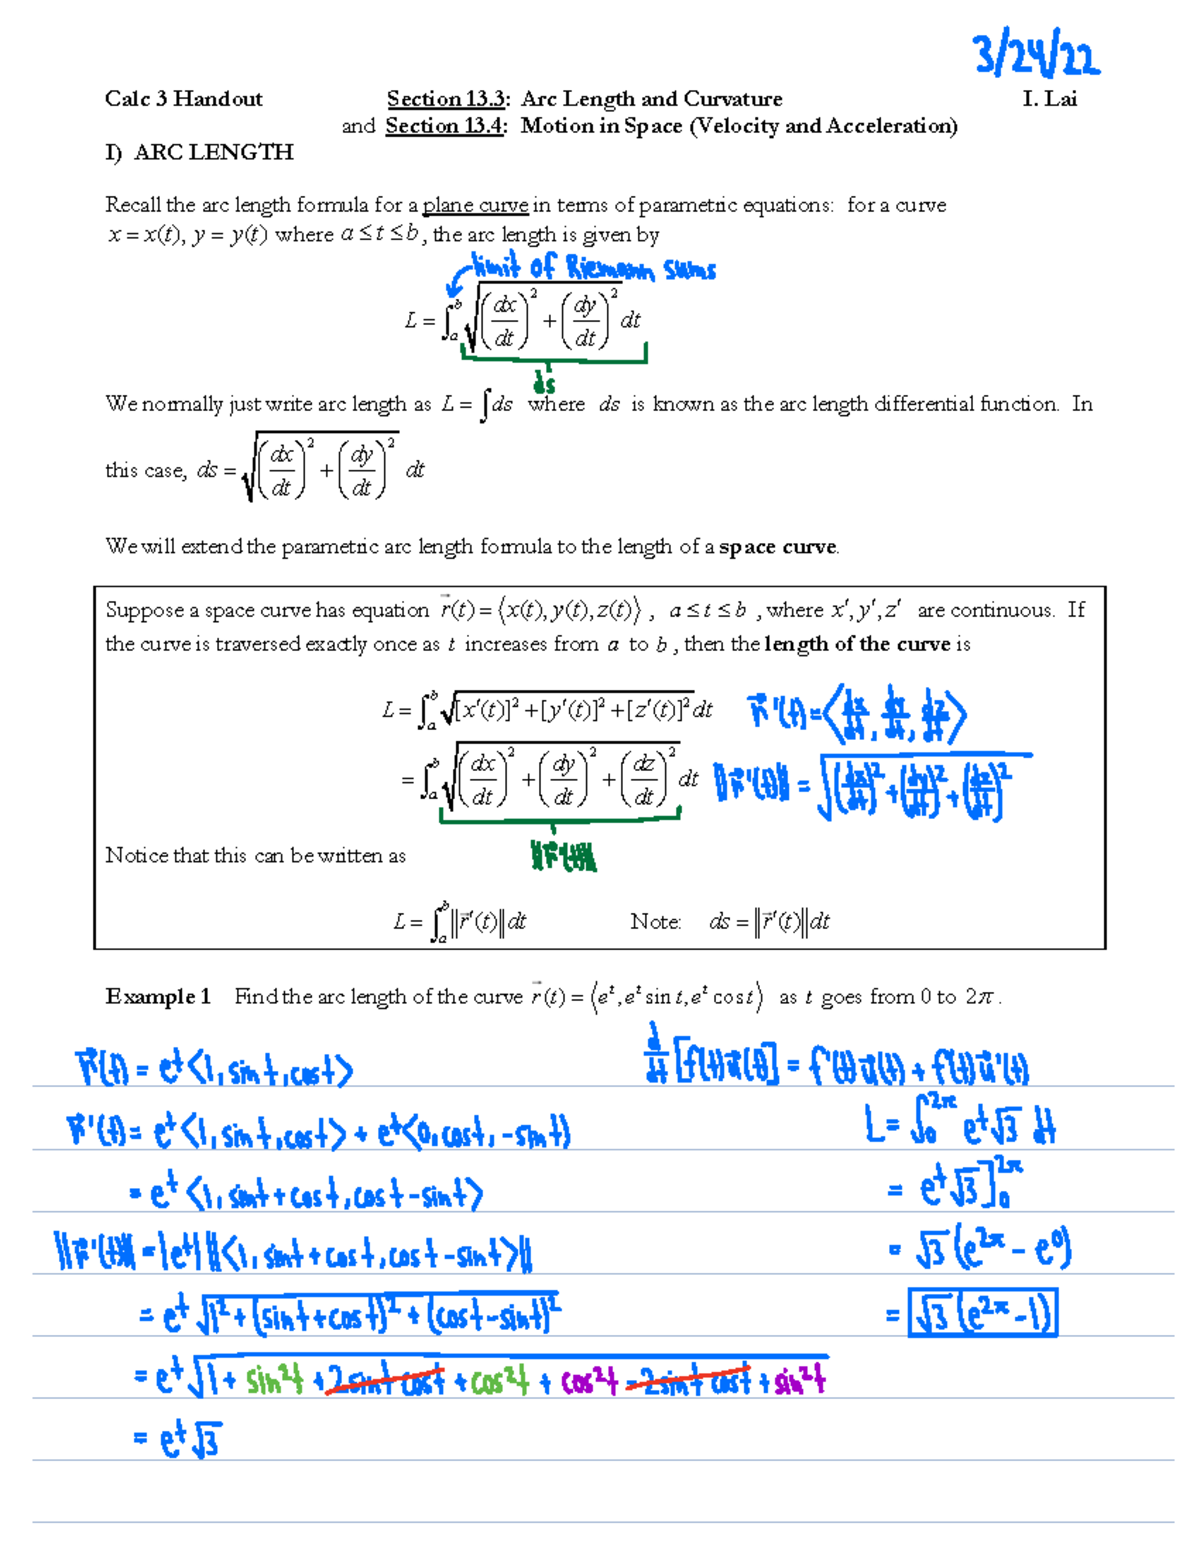 3/24/22
Calc 3 Handout Section 13.3: Arc Length and Curvature I. Lai
and Section 13.4: Motion in Space (Velocity and Acceleration)
I) ARC LENGTH
Recall the arc length formula for a plane curve in terms of parametric equations: for a curve
x = x(t), y = y(t) where a ≤ t ≤ b, the arc length is given by
limit of Riemann sums
L = ∫_a^b √((dx/dt)² + (dy/dt)²) dt
ds
We normally just write arc length as L = ∫ds where ds is known as the arc length differential function. In
this case, ds = √((dx/dt)² + (dy/dt)²) dt
We will extend the parametric arc length formula to the length of a space curve.
Suppose a space curve has equation r⃗(t) = ⟨x(t), y(t), z(t)⟩ , a ≤ t ≤ b , where x′, y′, z′ are continuous. If
the curve is traversed exactly once as t increases from a to b , then the length of the curve is
L = ∫_a^b √([x′(t)]² + [y′(t)]² + [z′(t)]²) dt r⃗'(t) = ⟨dx/dt, dy/dt, dz/dt⟩
= ∫_a^b √((dx/dt)² + (dy/dt)² + (dz/dt)²) dt ‖r⃗'(t)‖ = √((dx/dt)² + (dy/dt)² + (dz/dt)²)
‖r⃗'(t)‖
Notice that this can be written as
L = ∫_a^b ‖r⃗′(t)‖ dt Note: ds = ‖r⃗′(t)‖ dt
Example 1 Find the arc length of the curve r⃗(t) = ⟨e^t, e^t sin t, e^t cos t⟩ as t goes from 0 to 2π.
r⃗(t) = e^t ⟨1, sin t, cos t⟩ d/dt [f(t)u⃗(t)] = f'(t)u⃗(t) + f(t)u⃗'(t)
r⃗'(t) = e^t ⟨1, sin t, cos t⟩ + e^t ⟨0, cos t, -sin t⟩ L = ∫_0^2π e^t √3 dt
= e^t ⟨1, sin t + cos t, cos t - sin t⟩ = e^t √3 ]_0^2π
‖r⃗'(t)‖ = |e^t| ‖⟨1, sin t + cos t, cos t - sin t⟩‖ = √3 (e^2π - e^0)
= e^t √(1² + (sin t + cos t)² + (cos t - sin t)²) = √3 (e^2π - 1)
= e^t √(1 + sin²t + 2 sin t cos t + cos²t + cos²t - 2 sin t cos t + sin²t)
= e^t √3